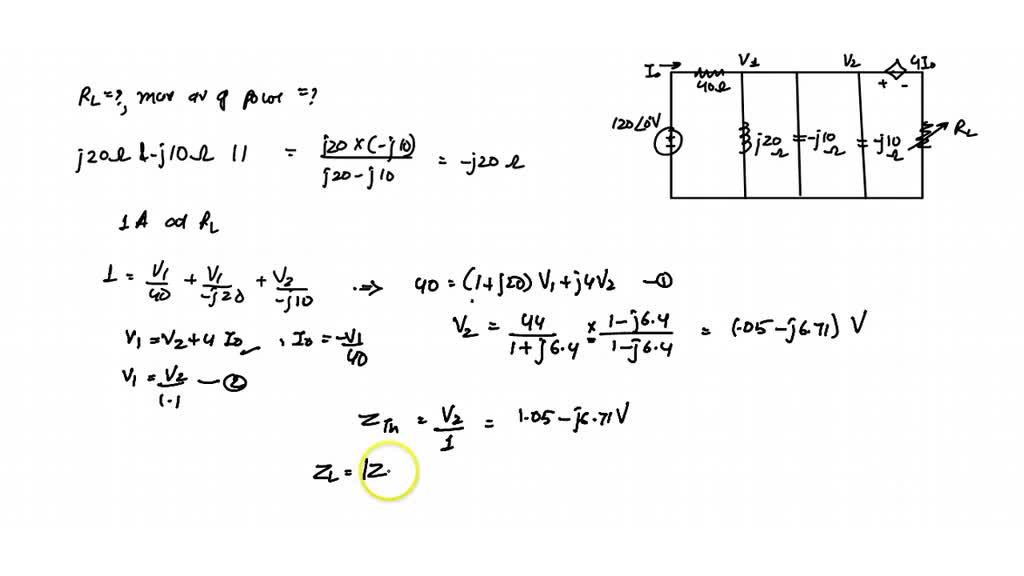 RL=?, max avg power =?
j20Ω & -j10Ω || = j20×(-j10) / j20-j10 = -j20Ω
1A at RL
1 = V1/40 + V1/-j20 + V2/-j10 ⇒ 40 = (1+j20) V1 + j4V2 — ①
V1 = V2 + 4 I0, I0 = -V1/40
V2 = 44/1+j6.4 × 1-j6.4/1-j6.4 = (1.05 - j6.71) V
V1 = V2/1.1 — ②
ZTh = V2/1 = 1.05 - j6.71 V
ZL = |Z.
I0 →
40Ω
V1
V2
4I0
+ -
120∠0V
j20Ω
-j10Ω
-j10Ω
RL